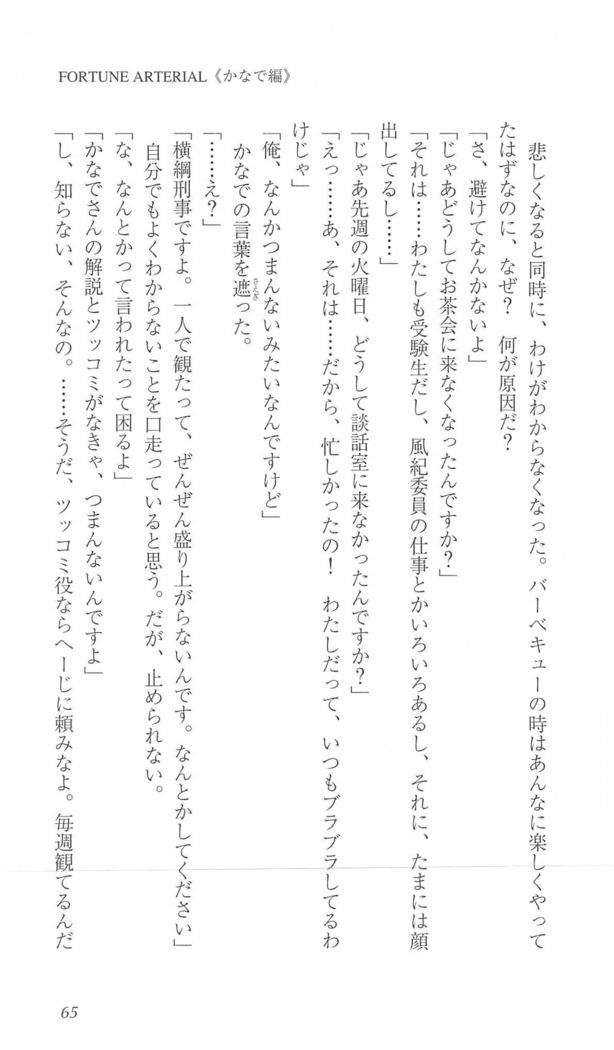 FORTUNE ARTERIAL《かなで編》
悲しくなると同時に、わけがわからなくなった。バーベキューの時はあんなに楽しくやって
たはずなのに、なぜ？　何が原因だ？
「さ、避けてなんかないよ」
「じゃあどうしてお茶会に来なくなったんですか？」
「それは……わたしも受験生だし、風紀委員の仕事とかいろいろあるし、それに、たまには顔
出してるし……」
「じゃあ先週の火曜日、どうして談話室に来なかったんですか？」
「えっ……あ、それは……だから、忙しかったの！　わたしだって、いつもブラブラしてるわ
けじゃ」
「俺、なんかつまんないみたいなんですけど」
かなでの言葉を遮さえぎった。
「……え？」
「横綱刑事ですよ。一人で観たって、ぜんぜん盛り上がらないんです。なんとかしてください」
自分でもよくわからないことを口走っていると思う。だが、止められない。
「な、なんとかって言われたって困るよ」
「かなでさんの解説とツッコミがなきゃ、つまんないんですよ」
「し、知らない、そんなの。……そうだ、ツッコミ役ならへーじに頼みなよ。毎週観てるんだ
65